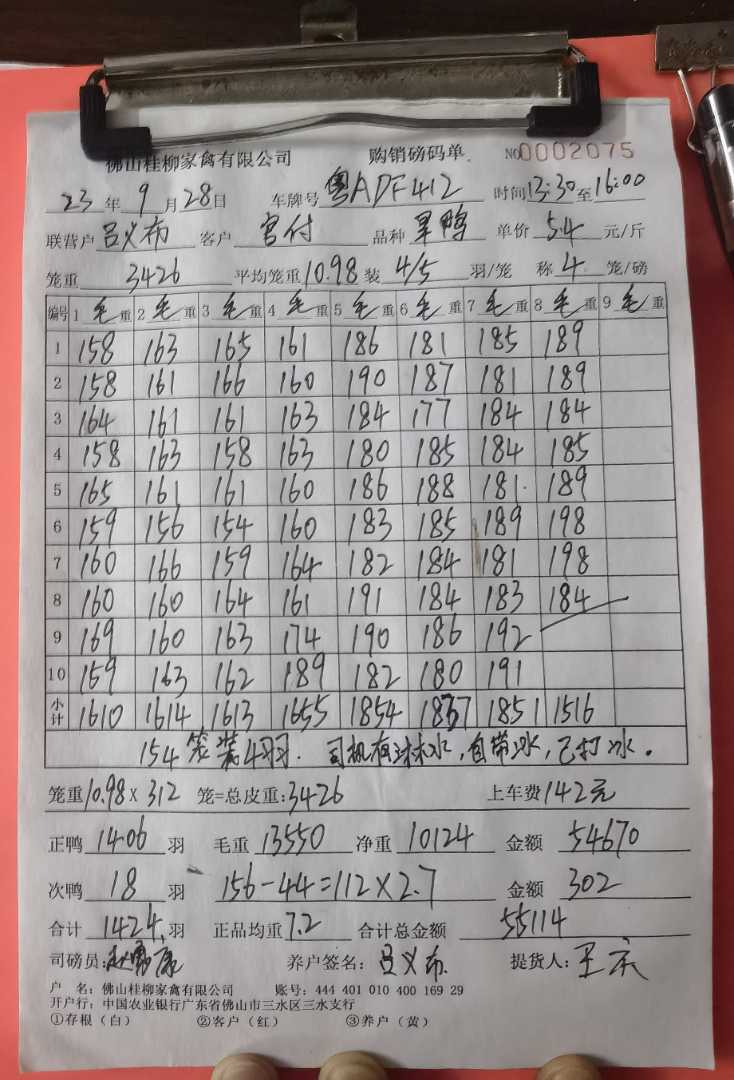 佛山桂柳家禽有限公司 购销磅码单 NO0002075
23年9月28日 车牌号粤ADF412 时间13:30至16:00
联营户吕义布 客户宫付 品种 单价5.4元/斤
笼重3426 平均笼重10.98装4/5羽/笼 称4笼/磅
编号 1毛重 2毛重 3毛重 4毛重 5毛重 6毛重 7毛重 8毛重 9毛重
1 158 163 165 161 186 181 185 189
2 158 161 166 160 190 187 181 189
3 164 161 161 163 184 177 184 184
4 158 163 158 163 180 185 184 185
5 165 161 161 160 186 188 181 189
6 159 156 154 160 183 185 189 198
7 160 166 159 164 182 184 181 198
8 160 160 164 161 191 184 183 184
9 169 160 163 174 190 186 192
10 159 163 162 189 182 180 191
小计 1610 1614 1613 1655 1854 1837 1851 1516
154笼装4羽. 司机有冰水,自带冰,已打冰.
笼重10.98×312 笼=总皮重:3426 上车费142元
正鸭1406羽 毛重13550净重10124 金额54670
次鸭18羽 156-44=112×2.7 金额302
合计1424羽 正品均重7.2 合计总金额55114
司磅员: 养户签名:吕义布 提货人:
户 名:佛山桂柳家禽有限公司 账号:444 401 010 400 169 29
开户行:中国农业银行广东省佛山市三水区三水支行
①存根(白) ②客户(红) ③养户(黄)